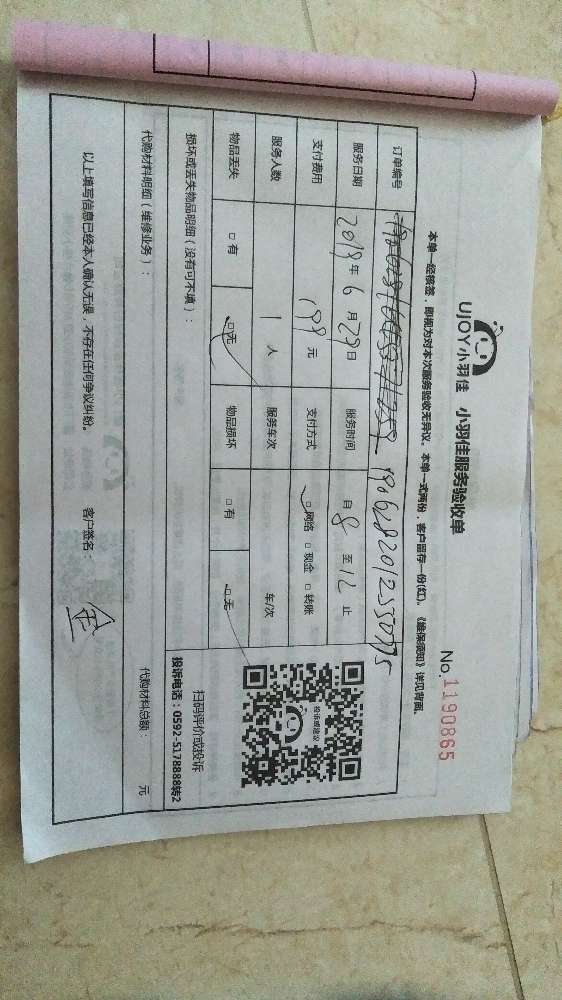 UJOY小羽佳 小羽佳服务验收单
No.1190865
本单一经核签，即视为对本次服务验收无异议。本单一式两份，客户留存一份(红)。《维保须知》详见背面。
订单编号 190628201255075
服务日期 2019年 6月29日 服务时间 自 8 至 12 止
支付费用 199 元 支付方式 □网络 □现金 □转账
服务人数 1 人 服务车次 车/次
物品丢失 □有 □无 物品损坏 □有 □无
投诉或建议
扫码评价或投诉
投诉电话：0592-5178888转2
损坏或丢失物品明细（没有可不填）：
代购材料明细（维修业务）： 代购材料总额： 元
以上填写信息已经本人确认无误，不存在任何争议纠纷。 客户签名：